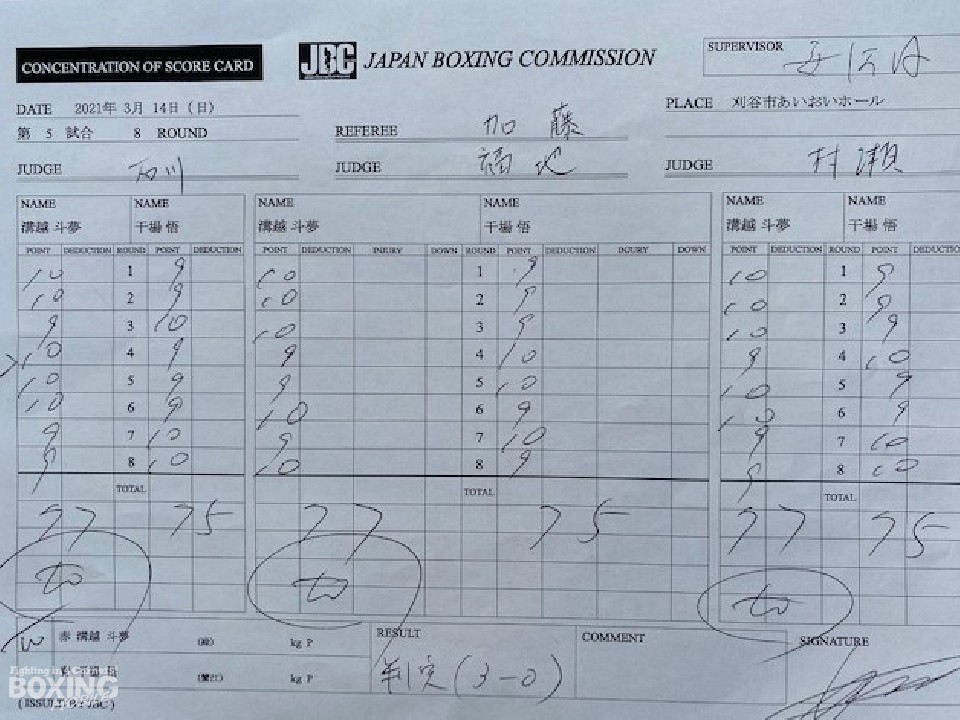 CONCENTRATION OF SCORE CARD
JBC JAPAN BOXING COMMISSION
SUPERVISOR
DATE 2021年 3月 14日 (日)
PLACE 刈谷市あいおいホール
第 5 試合 8 ROUND
REFEREE 加藤
JUDGE 石川
JUDGE 福地
JUDGE 村瀬
NAME NAME NAME NAME NAME NAME
溝越 斗夢 干場 悟 溝越 斗夢 干場 悟 溝越 斗夢 干場 悟
POINT DEDUCTION ROUND POINT DEDUCTION POINT DEDUCTION INJURY DOWN ROUND POINT DEDUCTION INJURY DOWN POINT DEDUCTION ROUND POINT DEDUCTIO
10 1 9 10 1 9 10 1 9
10 2 9 10 2 9 10 2 9
9 3 10 10 3 9 10 3 9
10 4 9 9 4 10 9 4 10
10 5 9 9 5 10 10 5 9
10 6 9 10 6 9 10 6 9
9 7 10 9 7 10 9 7 10
9 8 10 10 8 9 9 8 10
TOTAL TOTAL TOTAL
77 75 77 75 77 75
赤 溝越 斗夢 kg P
kg P
RESULT
判定 (3-0)
COMMENT
SIGNATURE
Fighting in
BOXING
(ISSUED BY JBC)